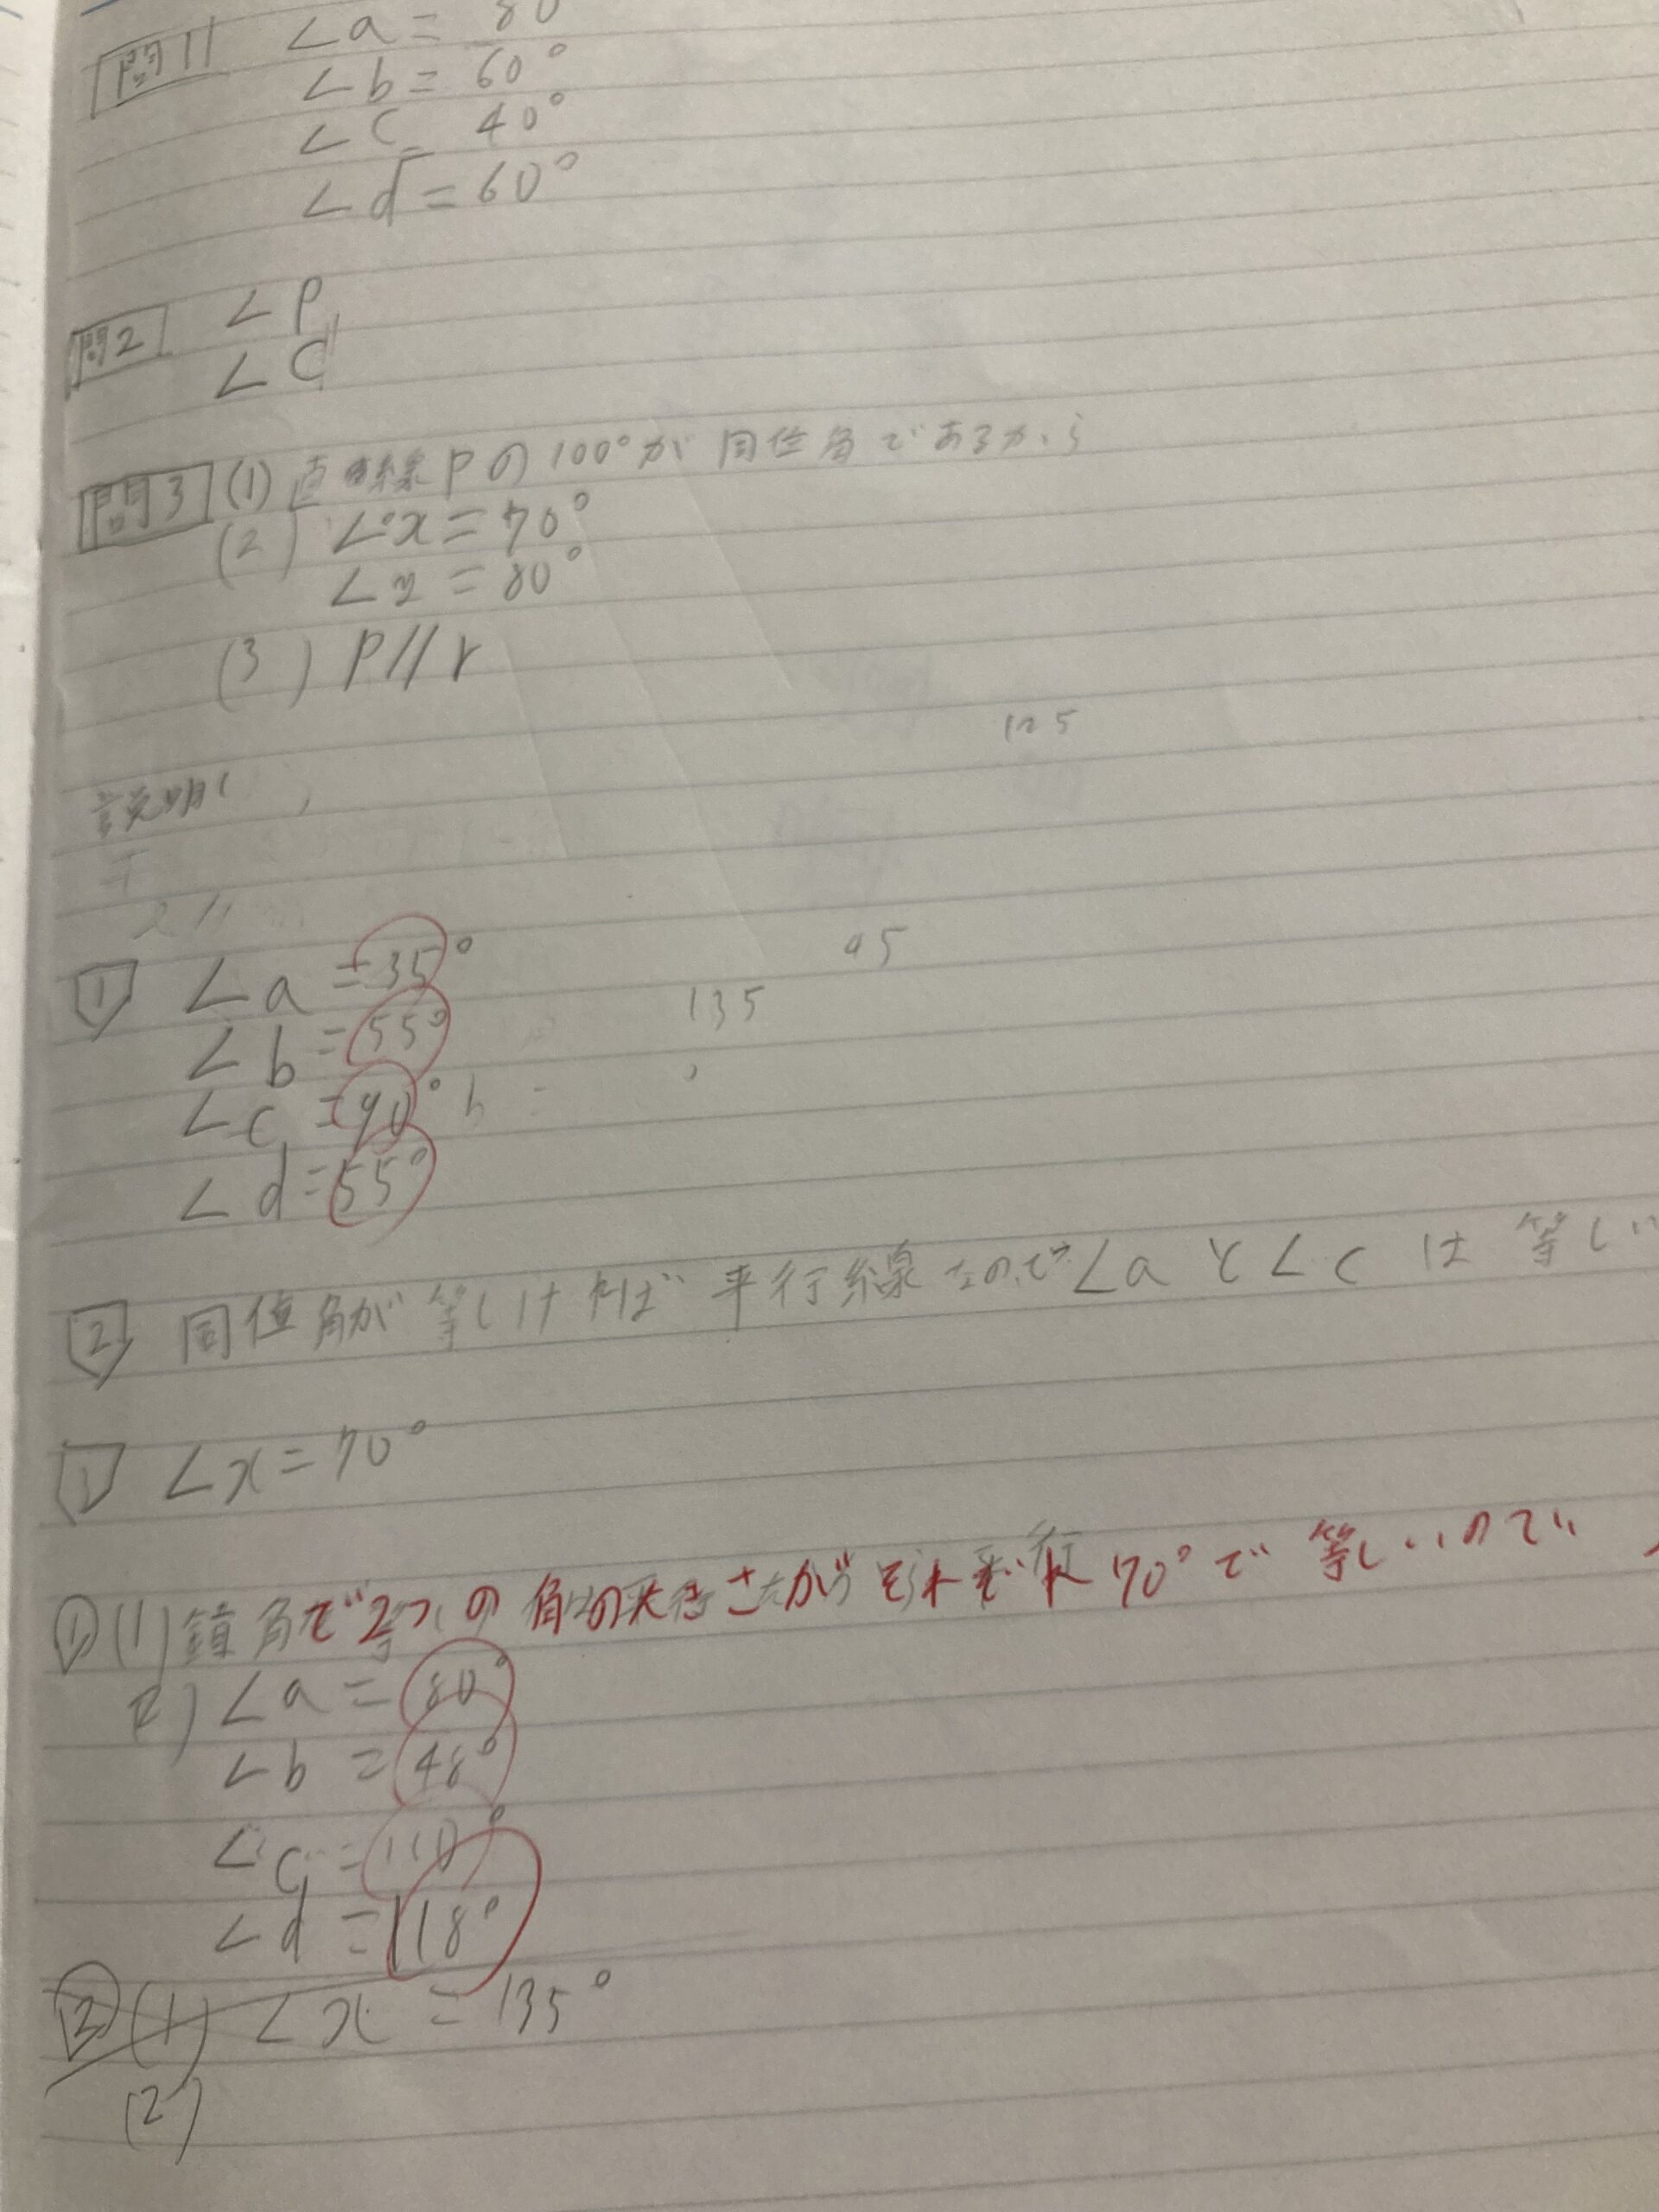 問1 ∠a = 80
∠b = 60°
∠c = 40°
∠d = 60°
問2 ∠P
∠C
問3 (1) 直線Pの100°が同位角であるから
(2) ∠x = 70°
∠y = 80°
(3) P//r
125
説明(
平
2//
1 ∠a = 35°
95
∠b = 55°
135
∠c = 90° b =
∠d = 55°
2 同位角が等しければ平行線なので∠aと∠cは等しい
1 ∠x = 70°
① (1) 錯角で2つの角の大きさがそれぞれ70°で等しいので
2) ∠a = 80°
∠b = 48°
∠c = 110°
∠d = 118°
② (1) ∠x = 135°
(2)